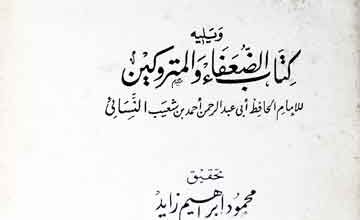 ويليه
كتاب الضعفاء والمتروكين
للإمام الحافظ أبي عبد الرحمن أحمد بن شعيب النسائي
تحقيق
محمود إبراهيم زايد